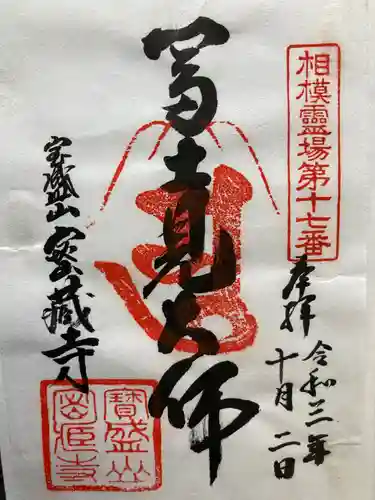 相模霊場第十七番
奉拝
令和三年
十月二日
富士見大師
宝盛山 密蔵寺
寶盛山
密蔵寺